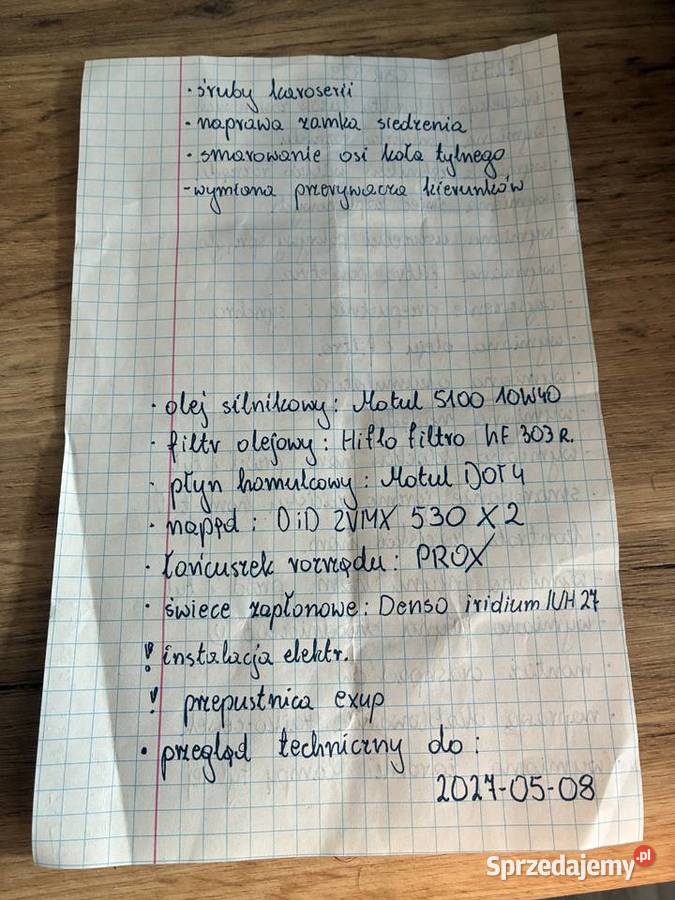 · śruby karoserii
· naprawa zamka siedzenia
· smarowanie osi koła tylnego
- wymiana przerywacza kierunków
· olej silnikowy: Motul 5100 10W40
· filtr olejowy: Hiflo filtro hF 303 R.
· płyn hamulcowy: Motul DOT4
· napęd: DiD ZVMX 530 X 2
· łańcuszek rozrządu: PROX
· świece zapłonowe: Denso iridium IUH 27
! instalacja elektr.
! przepustnica exup
· przegląd techniczny do:
2027-05-08
Sprzedajemy.pl